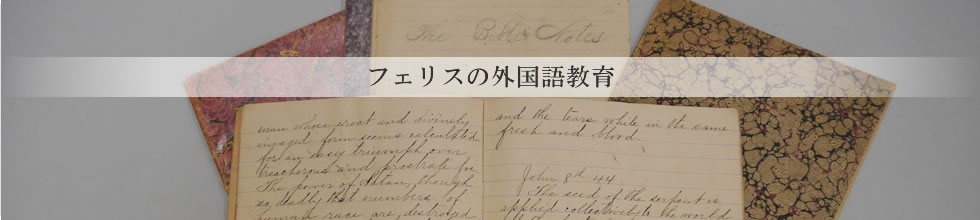 The Bible Notes
フェリスの外国語教育
man whose erect and divinely
imaged form seems calculated
for an easy triumph over
treacherous and prostrate foe.
The power of Satan, though
so deadly that numbers of
human race are destroyed
and the tears white in the same
fresh and blood.
John 8th 44.
The seed of the serpent is
applied collectively to the world